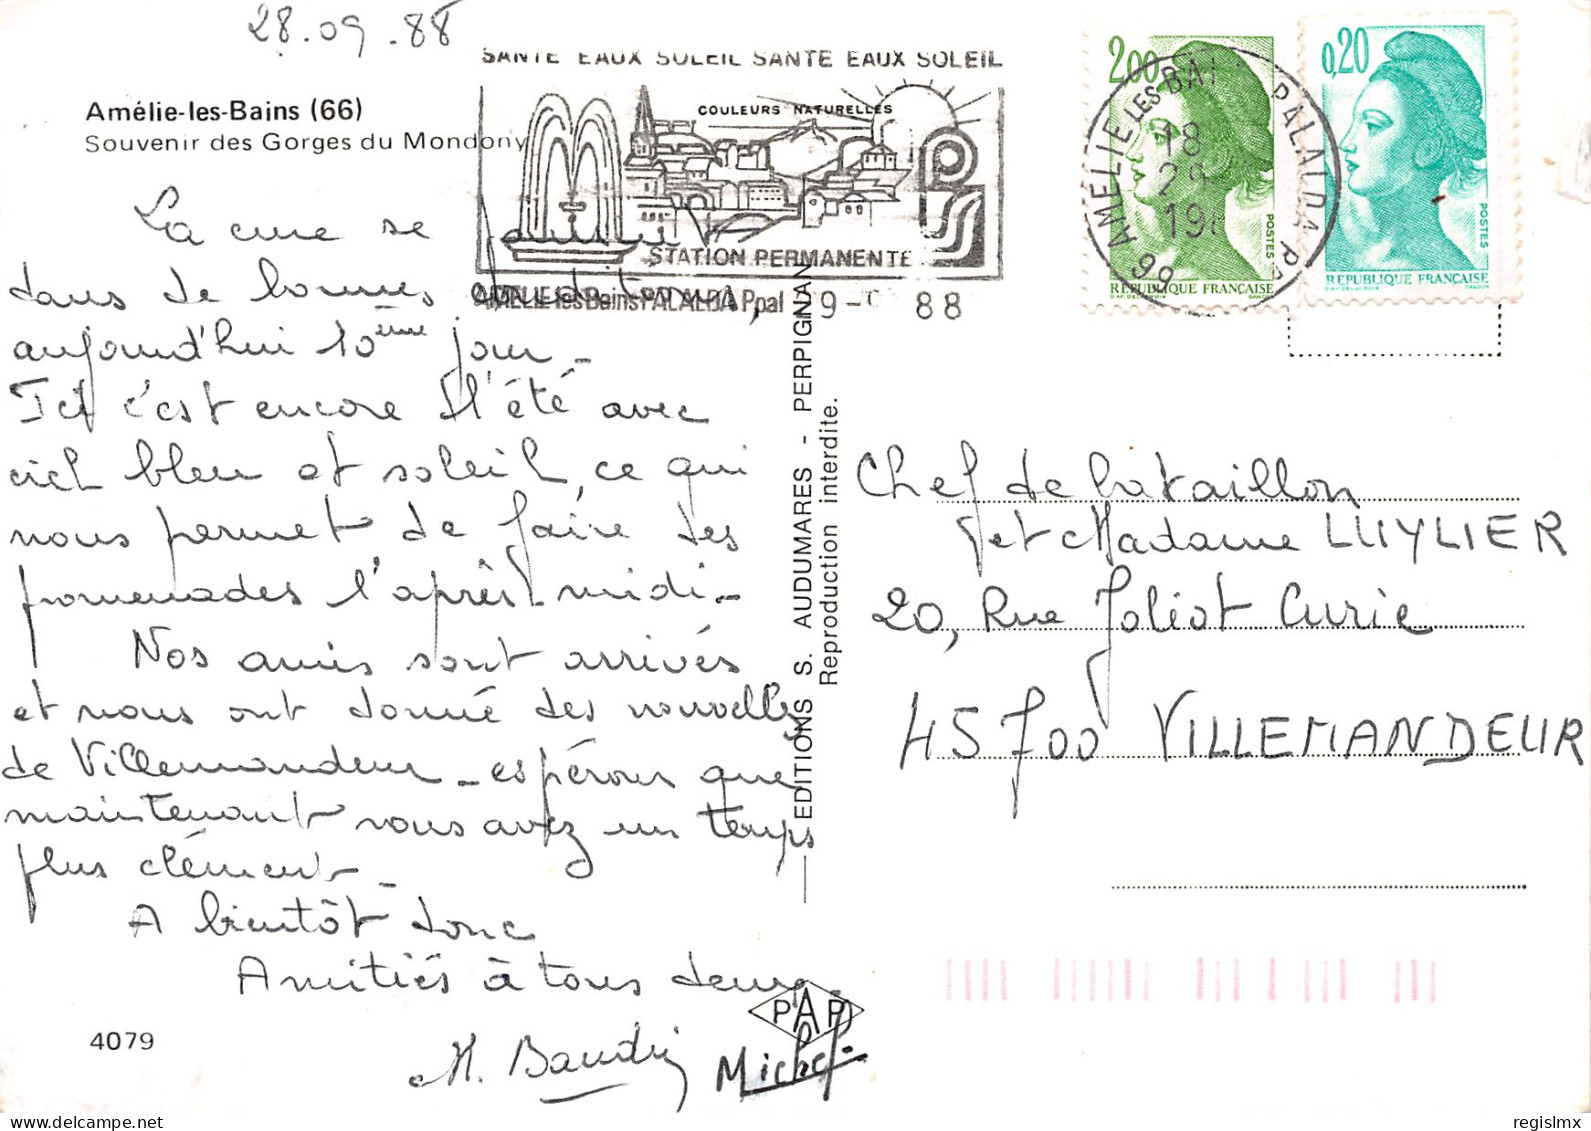 28.09.88
Amélie-les-Bains (66)
Souvenir des Gorges du Mondony
SANTE EAUX SOLEIL SANTE EAUX SOLEIL
COULEURS NATURELLES
STATION PERMANENTE
AMELIE-les-Bains PALALDA Ppal 9- 88
2,00
POSTES
REPUBLIQUE FRANÇAISE
0,20
POSTES
REPUBLIQUE FRANÇAISE
66 AMELIE LES BAI PALALDA P
18
29
19
La cure se
dans de bonnes
aujourd'hui 10ème jour_
Ici c'est encore l'été avec
ciel bleu et soleil, ce qui
nous permet de faire des
promenades l'après-midi_
Nos amis sont arrivés
et nous ont donné des nouvelles
de Villemandeur _ espérons que
maintenant vous avez un temps
plus clément_
A bientôt donc
Amitiés à tous deux_
M. Baudry
Michel
4079
PAP
EDITIONS S. AUDUMARES - PERPIGNAN
Reproduction interdite.
Chef de bataillon
et Madame LUYLIER
20, Rue Joliot Curie
45700 VILLEMANDEUR
regislmx